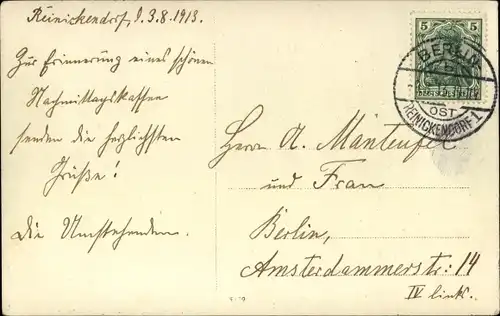 Reinickendorf, d. 3.8.1913.
Zur Erinnerung eines schönen
Nachmittagskaffee
senden die herzlichsten
Grüße!
Die Umstehenden.
Herrn A. Manteufel
und Frau
Berlin,
Amsterdammerstr. 14
IV links.
5 5
BERLIN
OST
REINICKENDORF 1